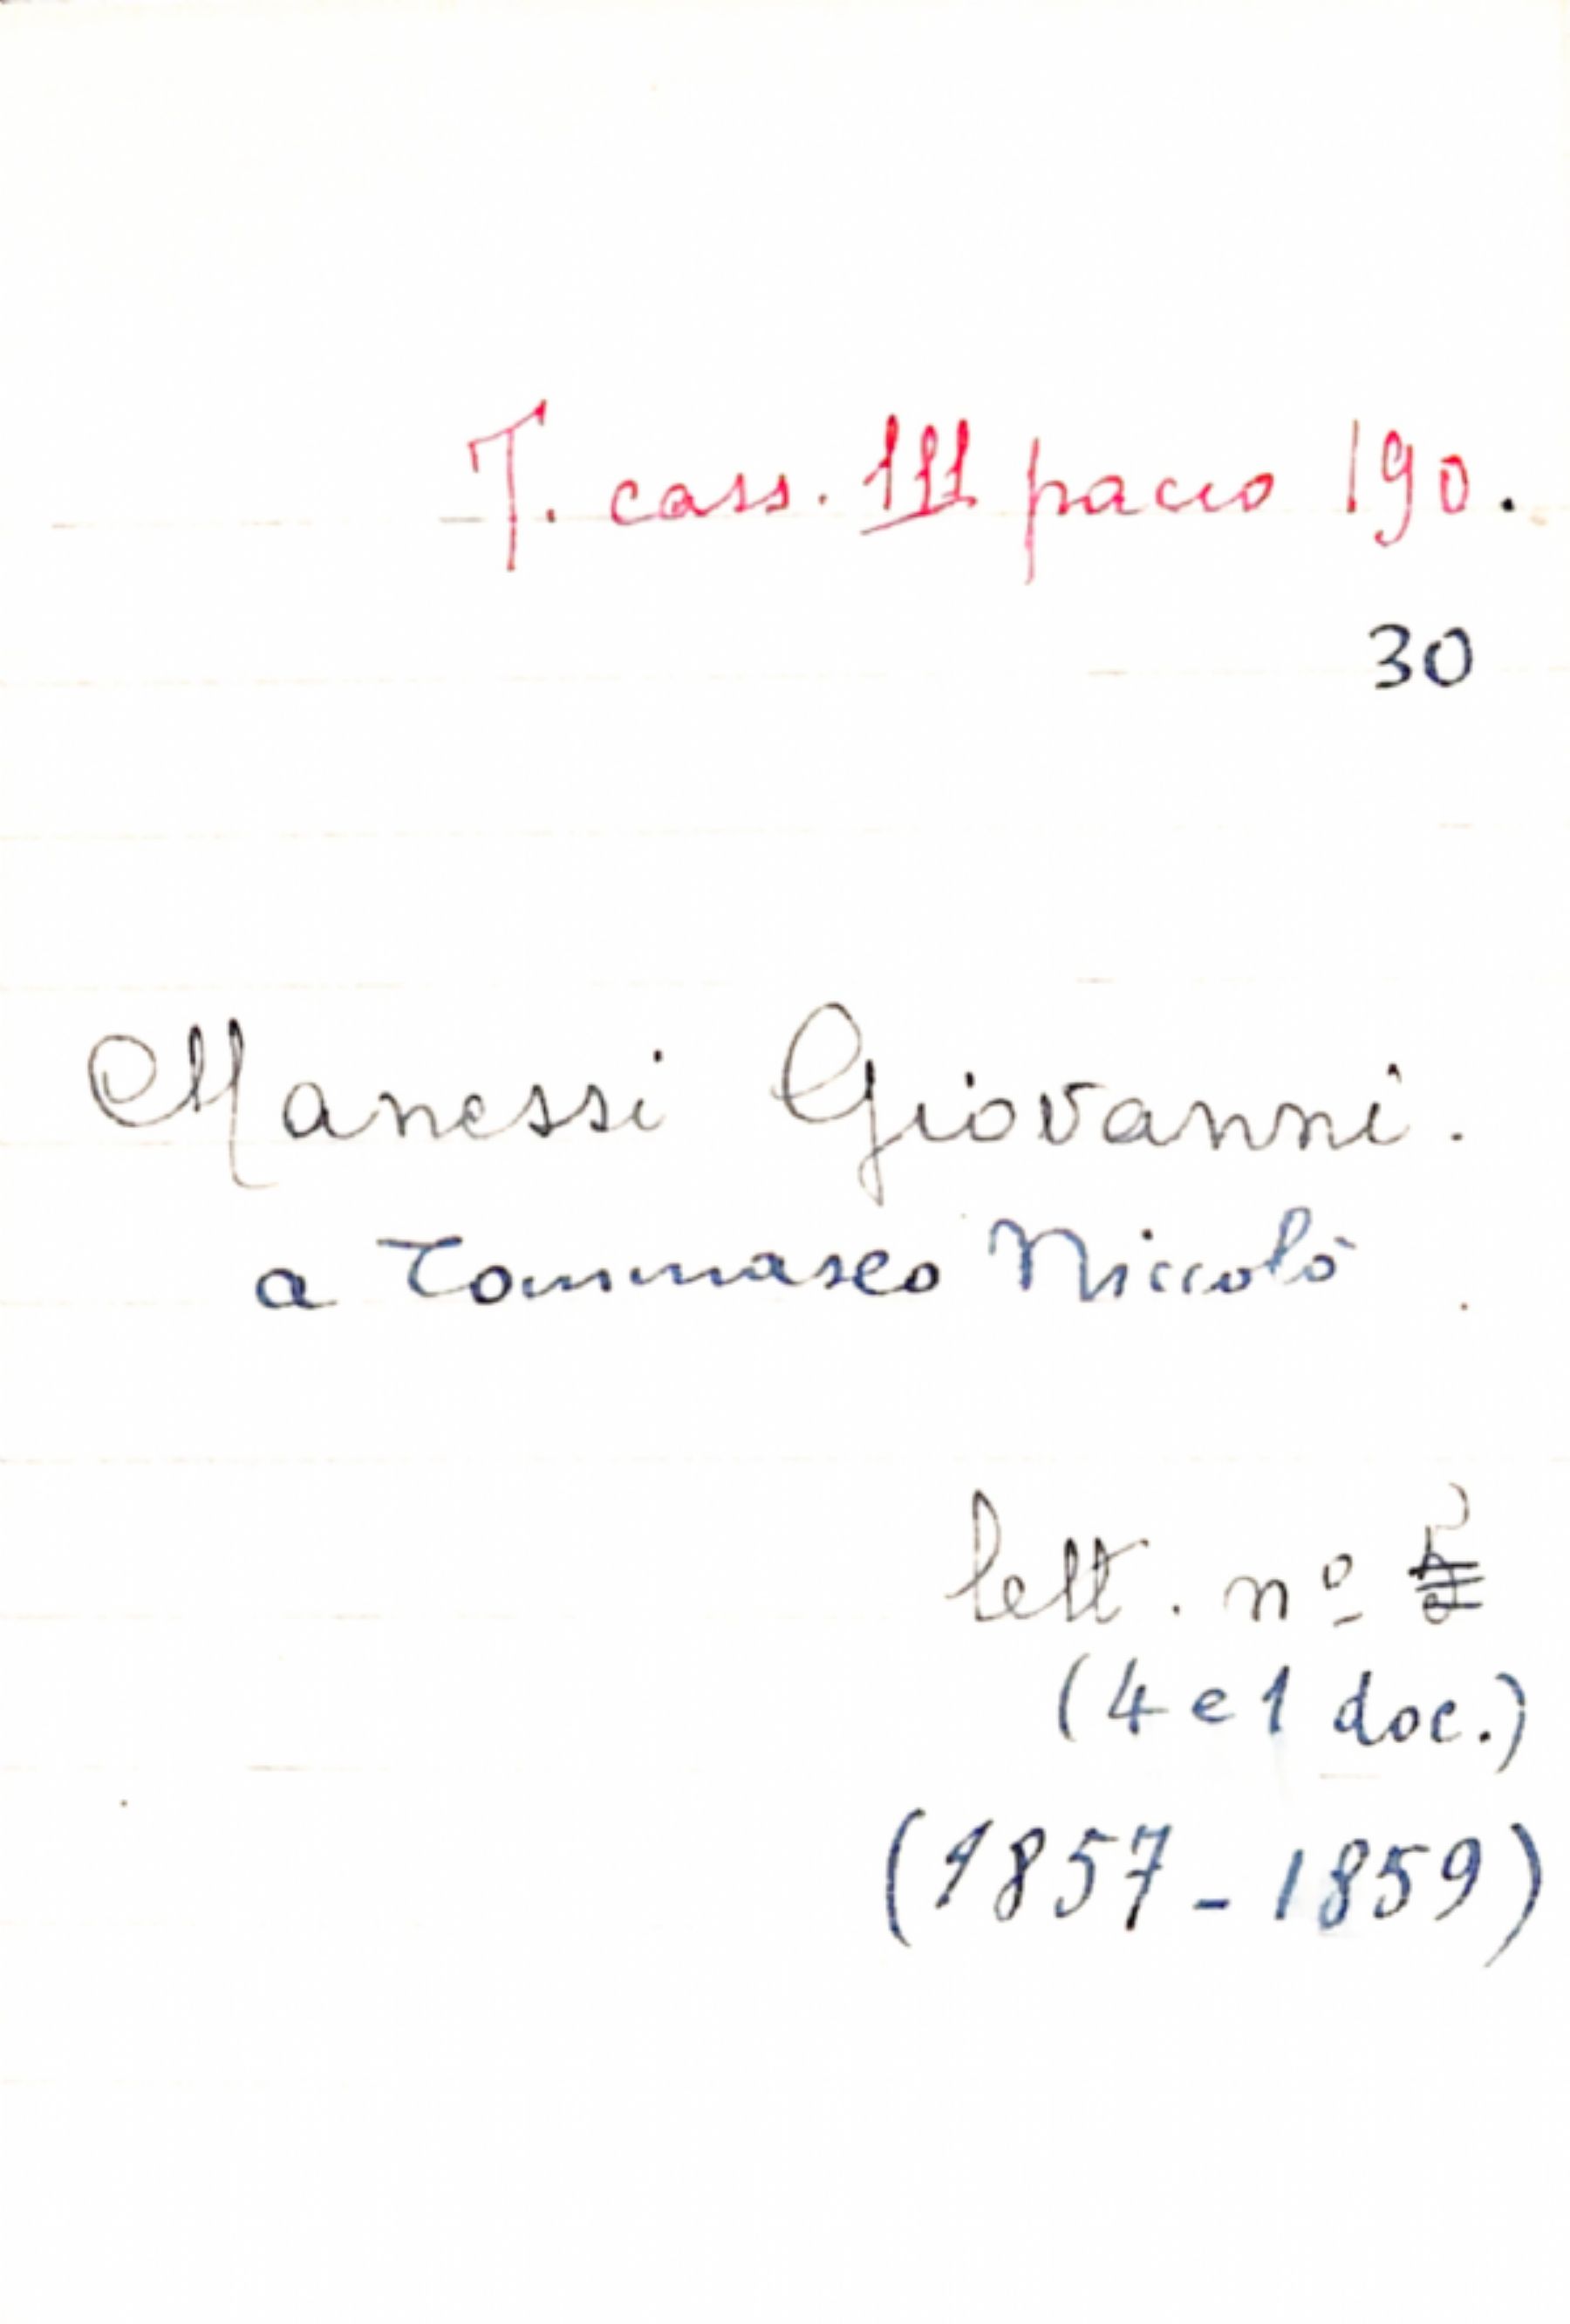 T. cass. III pacco 190.
30
Manessi Giovanni.
a Tommaseo Niccolò
lett. nº
(4 e 1 doc.)
(1857-1859)